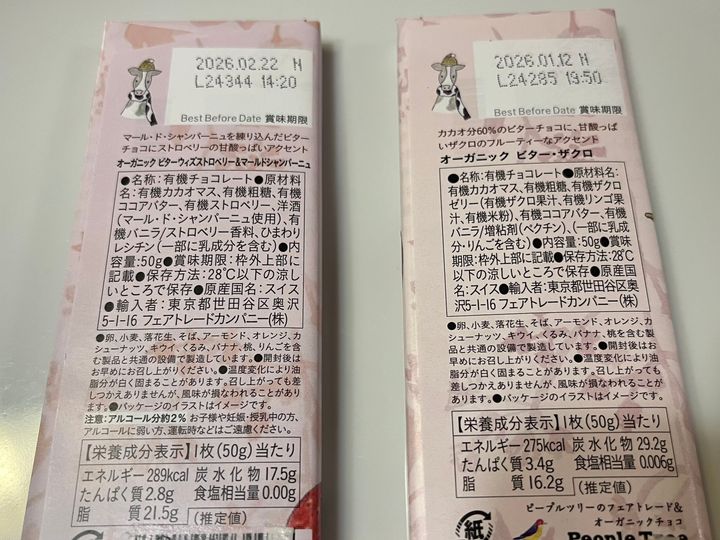 2026.02.22 N
L24344 14:20
Best Before Date 賞味期限
マール・ド・シャンパーニュを練り込んだビター
チョコにストロベリーの甘酸っぱいアクセント
オーガニック ビターウィズストロベリー&マールドシャンパーニュ
●名称:有機チョコレート●原材料
名:有機カカオマス、有機粗糖、有機
ココアバター、有機ストロベリー、洋酒
(マール・ド・シャンパーニュ使用)、有
機バニラ/ストロベリー香料、ひまわり
レシチン(一部に乳成分を含む)●内
容量:50g●賞味期限:枠外上部に
記載●保存方法:28℃以下の涼し
いところで保存●原産国名:スイス
●輸入者:東京都世田谷区奥沢
5-1-16 フェアトレードカンパニー(株)
●卵、小麦、落花生、そば、アーモンド、オレンジ、カ
シューナッツ、キウイ、くるみ、バナナ、桃、りんごを含
む製品と共通の設備で製造しています。●開封後は
お早めにお召し上がりください。●温度変化により油
脂分が白く固まることがあります。召し上がっても差
しつかえありませんが、風味が損なわれることがありま
す。●パッケージのイラストはイメージです。
注意:アルコール分約2% お子様や妊娠・授乳中の方、
アルコールに弱い方、運転時などはご遠慮ください。
【栄養成分表示】1枚(50g)当たり
エネルギー289kcal 炭水化物17.5g
たんぱく質2.8g 食塩相当量0.00g
脂質21.5g (推定値)
2026.01.12 N
L24285 19:50
Best Before Date 賞味期限
カカオ分60%のビターチョコに、甘酸っぱ
いザクロのフルーティーなアクセント
オーガニック ビター・ザクロ
●名称:有機チョコレート●原材料名:
有機カカオマス、有機粗糖、有機ザクロ
ゼリー(有機ザクロ果汁、有機リンゴ果
汁、有機米粉)、有機ココアバター、有機
バニラ/増粘剤(ペクチン)、(一部に乳成
分・りんごを含む)●内容量:50g●賞味
期限:枠外上部に記載●保存方法:28℃
以下の涼しいところで保存●原産国
名:スイス●輸入者:東京都世田谷区奥沢
5-1-16 フェアトレードカンパニー(株)
●卵、小麦、落花生、そば、アーモンド、オレンジ、カ
シューナッツ、キウイ、くるみ、バナナ、桃を含む製品
と共通の設備で製造しています。●開封後はお早
めにお召し上がりください。●温度変化により油
脂分が白く固まることがあります。召し上がっても
差しつかえありませんが、風味が損なわれることが
あります。●パッケージのイラストはイメージです。
【栄養成分表示】1枚(50g)当たり
エネルギー275kcal 炭水化物29.2g
たんぱく質3.4g 食塩相当量0.006g
脂質16.2g (推定値)
紙
ピープルツリーのフェアトレード&
オーガニックチョコ
People Tree